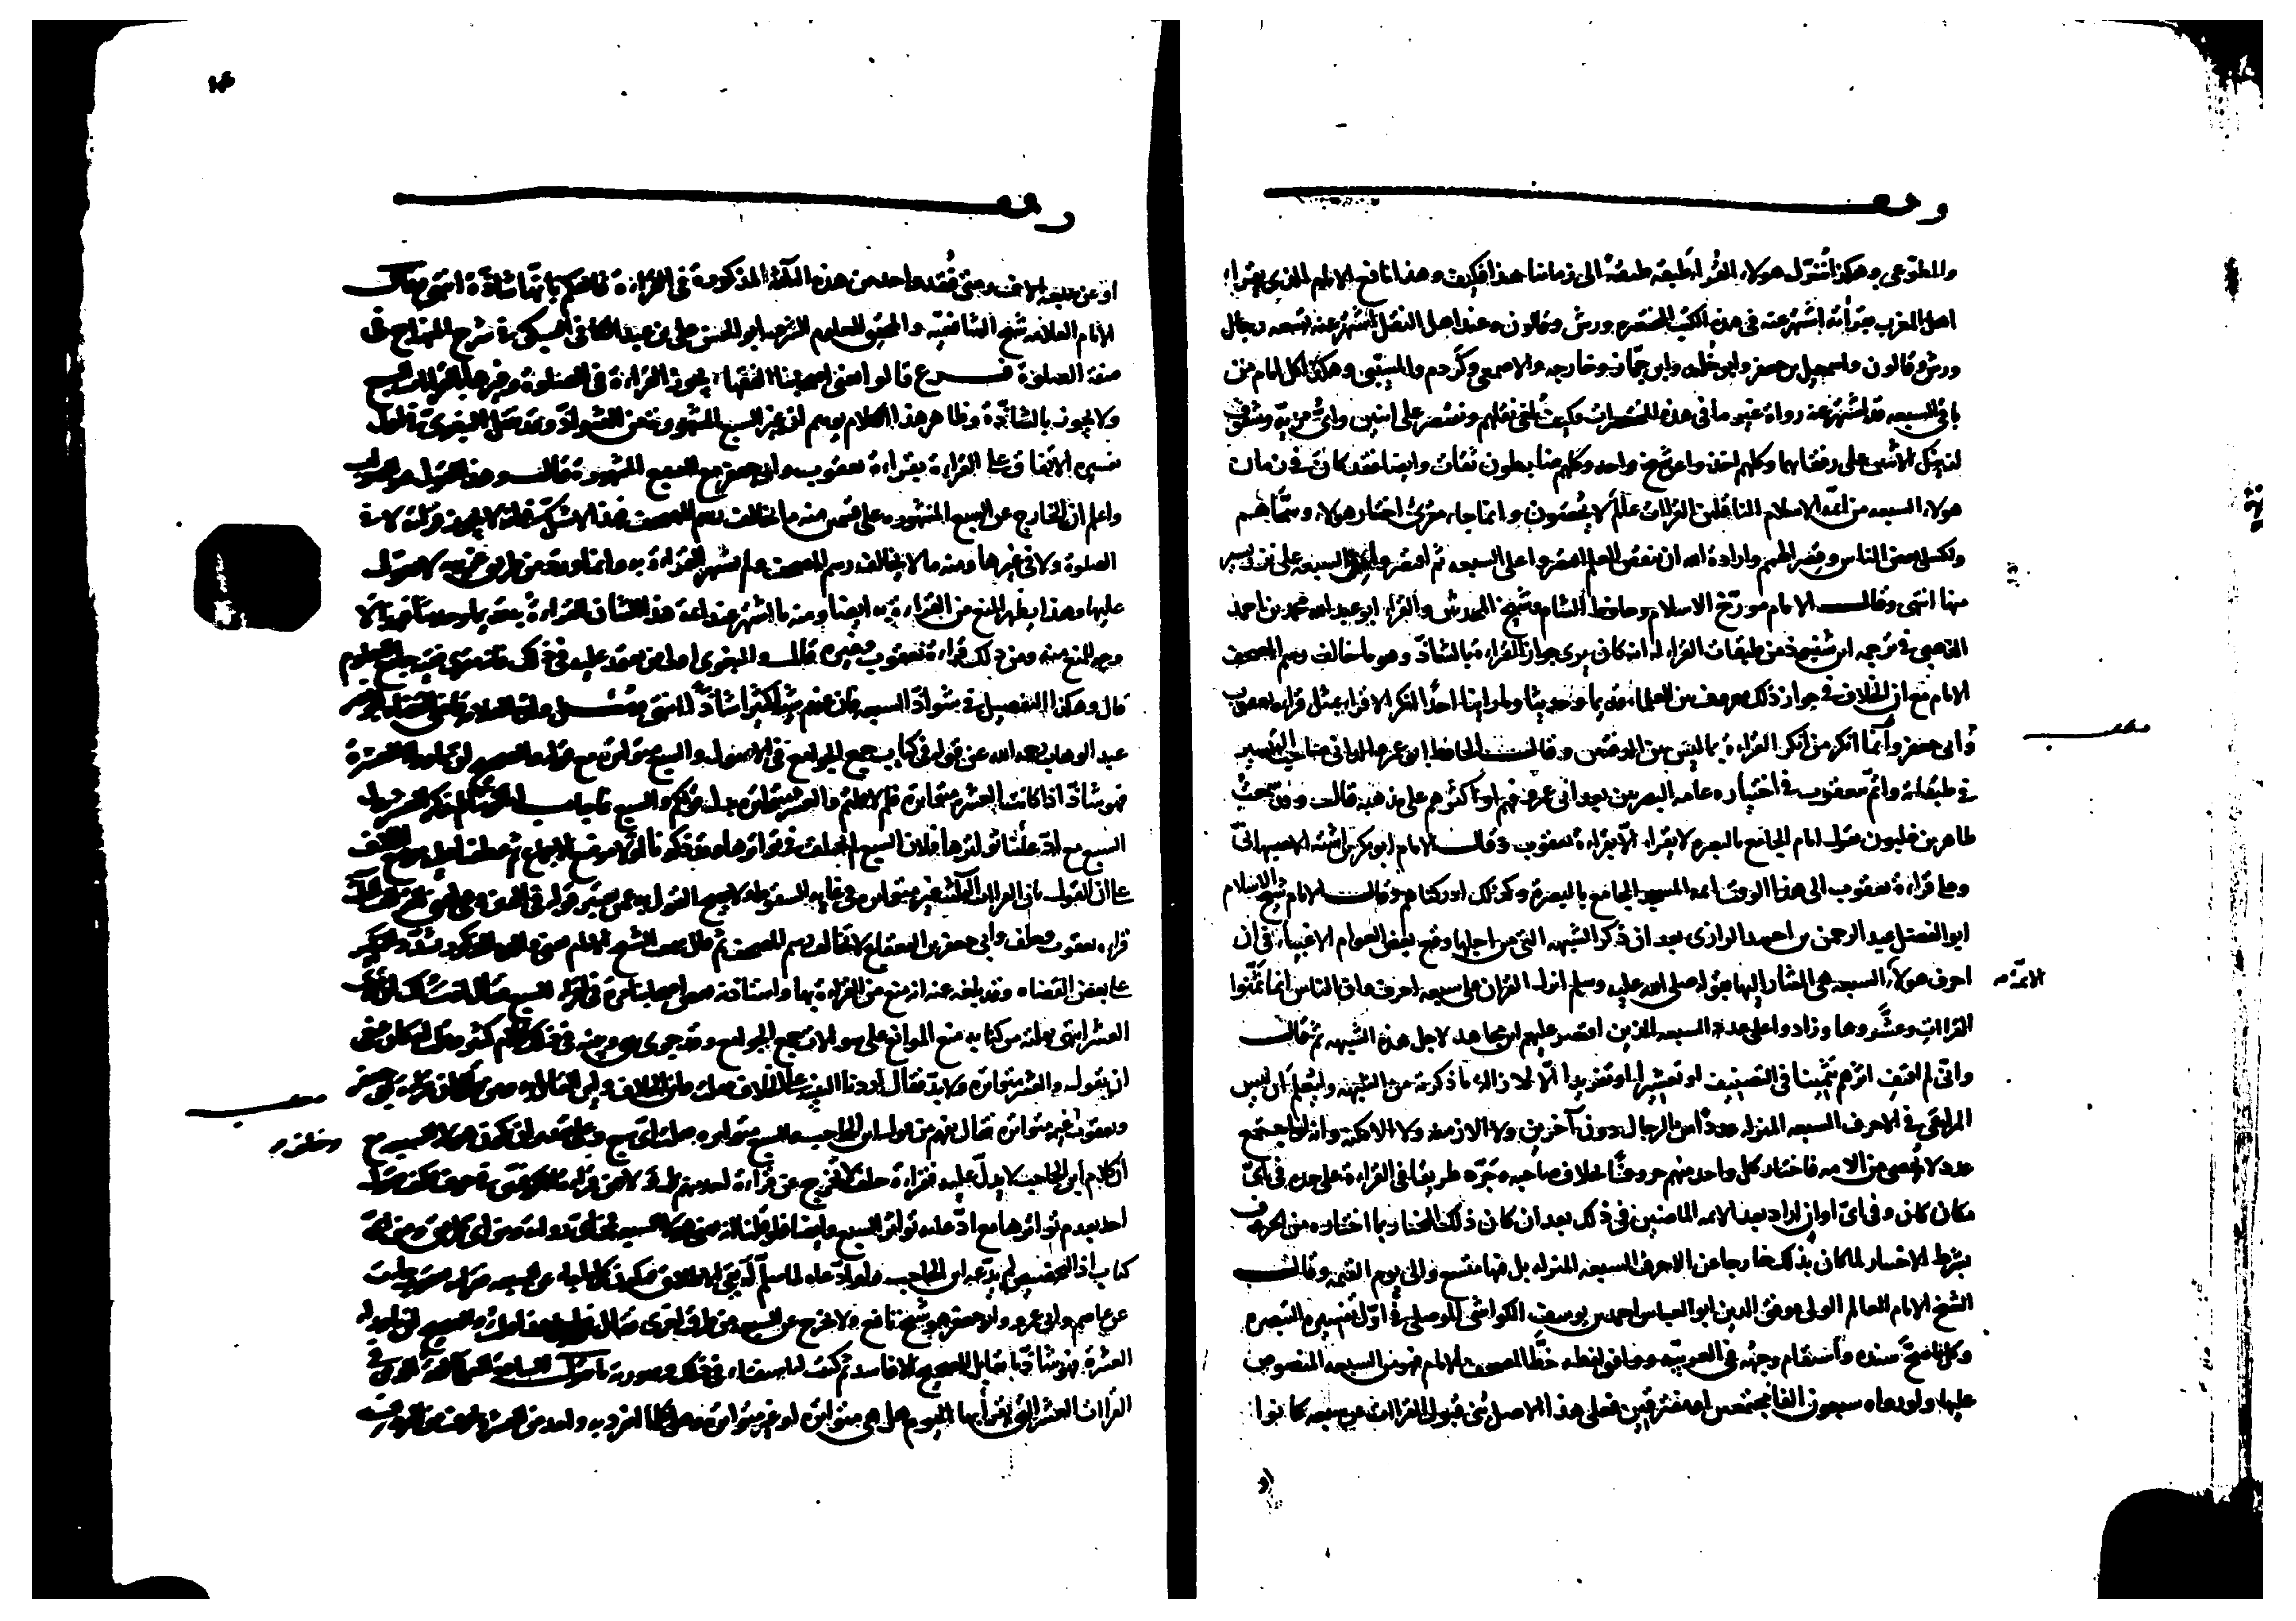 وقف
والمطوعي وهكذا تنزل هولاء القراء طبقة طبقة الى زماننا هذا فكيف وهذا نافع الامام الذي يقرا
اهل المغرب بقراته اشتهر عنه في هذه الكتب المختصره ورش وقالون وعند اهل النقل اشتهر عنه تسعه رجال
ورش وقالون واسمعيل بن جعفر وابو خليد وابن جماز وخارجه والاصمعي وكردم والمسيبي وهكذا كل امام من
باقي السبعه قد اشتهر عنه رواة غير ما في هذه المختصرات فكيف نلغي نقلهم ونقتصر على اثنين واي مزية وشفوف
لذينك الاثنين على رفقائهما وكلهم اخذوا عن شيخ واحد وكلهم ضابطون ثقات وايضا فقد كان في زمان
هولاء السبعه من ائمة الاسلام الناقلين القراات عالم لا يحصون وانما جاء مقرئ اختار هولاء وسماهم
ولكسل بعض الناس وقصر الهمم وارادة الله ان ينقص العلم اقتصروا على السبعه ثم اقتصروا من السبعه على نزر يسير
منها انتهى وقال الامام مورخ الاسلام وحافظ الشام وشيخ المحدثين والقراء ابو عبد الله محمد بن احمد
الذهبي في ترجمه ابن شنبوذ من طبقات القراء له انه كان يرى جواز القراءة بالشاذ وهو ما خالف رسم المصحف
الامام مع ان الخلاف في جواز ذلك معروف بين العلماء قديما وحديثا وما راينا احدا انكر الاقراء بمثل قراءه يعقوب
وابي جعفر وانما انكر من انكر القراءة بما ليس بين الدفتين وقال الحافظ ابو عمرو الداني صاحب التيسير
في طبقاته وائتم بيعقوب في اختياره عامه البصريين بعد ابي عمرو فهم او اكثرهم على مذهبه قال وقد سمعت
طاهر بن غلبون يقول امام الجامع بالبصره لا يقراء الا بقراءة يعقوب وقال الامام ابو بكر بن اشته الاصبهاني
وعلى قراءة يعقوب الى هذا الوقت ائمه المسجد الجامع بالبصرة وكذلك ادركناهم وقال الامام شيخ الاسلام
ابو الفضل عبد الرحمن بن احمد الرازي بعد ان ذكر الشبهه التي من اجلها وقع بعض العوام الاغبياء في ان
احرف هولاء السبعه هي المشار اليها بقوله صلى الله عليه وسلم انزل القران على سبعه احرف وان الناس انما ثمنوا
الائمة
القراات وعشروها وزادوا على عدد السبعه الذين اقتصر عليهم ابن مجاهد لاجل هذه الشبهه ثم قال
واني لم اقتف اثرهم تثمينا في التصنيف او تعشيرا او تفريدا الا لازالة ما ذكرته من الشبهه وليعلم ان ليس
المراعى في الاحرف السبعه المنزله عددا من الرجال دون آخرين ولا الازمنه ولا الامكنه وانه لو اجتمع
عدد لا يحصى من الامه فاختار كل واحد منهم حروفا بخلاف صاحبه وجرد طريقا في القراءة على حده في اي
مكان كان وفي اي اوان اراد بعد الائمه الماضين في ذلك بعد ان كان ذلك المختار بما اختاره من الحروف
بشرط الاختيار لما كان بذلك خارجا عن الاحرف السبعه المنزله بل فيها متسع والى يوم القيمه وقال
الشيخ الامام العالم الولي موفق الدين ابو العباس احمد بن يوسف الكواشي الموصلي في اول تفسيره التبصره
وكل ما صح سنده واستقام وجهه في العربيه ووافق لفظه خط المصحف الامام فهو من السبعه المنصوص
عليها ولو رواه سبعون الفا مجتمعين او متفرقين فعلى هذا الاصل بني قبول القراات عن سبعه كانوا
وقف
او عن سبعه الاف ومتى فقد واحد من هذه الثلثة المذكورة في القراءة فاحكم بانها شاذة انتهى وقال
الامام العلامه شيخ الشافعيه والمحقق للعلوم الشرعيه ابو الحسن علي بن عبد الكافي السبكي في شرح المنهاج في
صفة الصلوة فرع قالوا يعني اصحابنا الفقهاء يجوز القراءة في الصلوة وغيرها بالقراات السبع
ولا يجوز بالشاذة وظاهر هذا الكلام يوهم ان غير السبع المشهورة من الشواذ وقد نقل البغوي في اول
تفسيره الاتفاق على القراءة بقراءة يعقوب وابي جعفر مع السبع المشهورة قال وهذا القول هو الصواب
واعلم ان الخارج عن السبع المشهوره على قسمين منه ما يخالف رسم المصحف فهذا لا شك في انه لا يجوز قراءته لا في
الصلوة ولا في غيرها ومنه ما لا يخالف رسم المصحف ولم تشتهر القراءة به وانما ورد من طريق غريبه لا يعول
عليها وهذا يظهر المنع من القراءة به ايضا ومنه ما اشتهر عند ائمة هذا الشان القراءة به قديما وحديثا فهذا لا
وجه للمنع منه ومن ذلك قراءة يعقوب وغيره قال والبغوي اولى من يعتمد عليه في ذلك فانه مقرئ فقيه جامع للعلوم
قال وهكذا التفصيل في شواذ السبعه فان عنهم شيئا كثيرا شاذا انتهى وسئل ولده العلامه قاضي القضاه ابو نصر
عبد الوهاب رحمه الله عن قوله في كتاب جمع الجوامع في الاصول والسبع متواترة مع قوله والصحيح ان ما وراء العشرة
فهو شاذ اذا كانت العشر متواترة فلم لا قلتم والعشر متواتره بدل قولكم والسبع فاجاب اما كوننا لم نذكر العشر بدل
السبع مع ادعائنا تواترها فلان السبع لم يختلف في تواترها وقد ذكرنا اولا موضع الاجماع ثم عطفنا عليه موضع الخلاف
على ان القول بان القراات الثلث غير متواتره في غايه السقوط ولا يصح القول به عمن يعتبر قوله في الدين وهي اعني القراات الثلث
قراءه يعقوب وخلف وابي جعفر بن القعقاع لا تخالف رسم المصحف ثم قال سمعت الشيخ الامام يعني والده المذكور يشدد النكير
على بعض القضاه وقد بلغه عنه انه منع من القراءة بها واستاذنه بعض اصحابنا مرة في اقراء السبع فقال اذنت لك ان تقرئ
العشر انتهى نقلته من كتابه منع الموانع على سوالات جمع الجوامع وقد جرى بيني وبينه في ذلك كلام كثير وقلت له كان ينبغي
ان يقول والعشر متواتره ولا بد فقال اردنا التنبيه على الخلاف فقلت واين الخلاف واين القائل به ومن قال ان قراءة ابي جعفر
ويعقوب وخلف غير متواترة فقال يفهم من قول ابن الحاجب والسبع متواتره فقلت اي سبع وعلى تقدير ان يكون هولاء السبعه مع
ان كلام ابن الحاجب لا يدل عليه فقراءة خلف لا تخرج عن قراءة احد منهم بل ولا عن قراءة الكوفيين في حرف فكيف يقول
احد بعدم تواترها مع ادعائه تواتر السبع وايضا فلو قلنا انه يعني هولاء السبعه فمن اي رواية ومن اي طريق ومن اي
كتاب اذ التخصيص لم يدعه ابن الحاجب ولو ادعاه لما سلم له بقي الاطلاق فيكون كل ما جاء عن السبعه فقراءه يعقوب جاءت
عن عاصم وابي عمرو وابو جعفر هو شيخ نافع ولا يخرج عن السبعه من طرق اخرى فقال فمن اجل هذا قلت والصحيح ان ما وراء
العشرة فهو شاذ ما يقابل الصحيح الا فاسد ثم كتبت له استفتاء في ذلك وصورته ما تقول السادة العلماء ائمة الدين في
القراات العشر التي يقرا بها اليوم هل هي متواترة او غير متواترة وهل كلما انفرد به واحد من العشره بحرف من الحروف